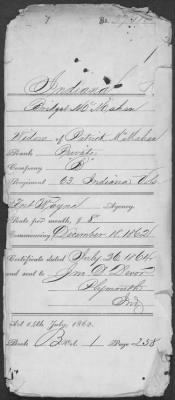 Indiana
Bridget McMahan
Widow of Patrick McMahan
Rank Private
Company "B"
Regiment 63 Indiana Vols
Fort Wayne Agency
Rate per month, $ 8
Commencing December 18, 1862
Certificate dated July 26, 1864
and sent to Jno D Devor
Plymouth
Ind
Act 14th July, 1862.
Book B Vol. 1 Page 258